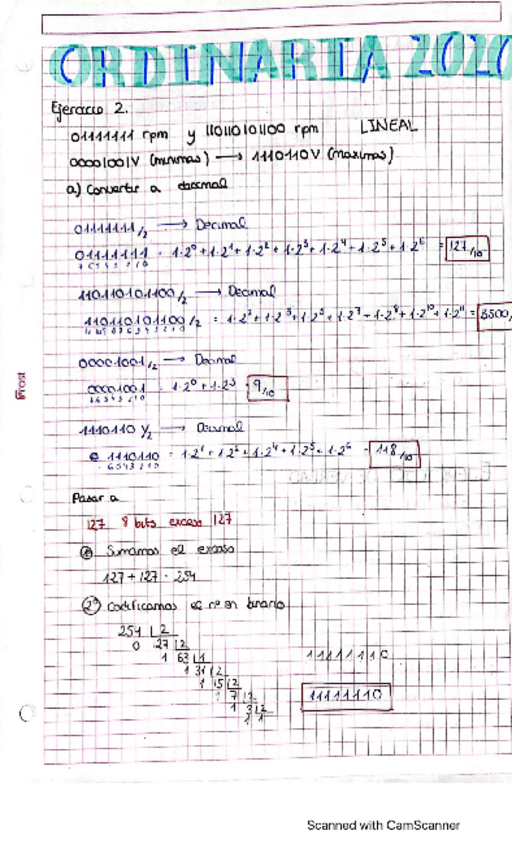 ORDINARIA 2020
Ejercicio 2.
01111111 rpm y 110110101100 rpm LINEAL
00001001V (minimas) → 1110110V (maximas)
a) Convertir a decimal
01111111/2 → Decimal
01111111 = 1·2⁰+1·2¹+1·2²+1·2³+1·2⁴+1·2⁵+1·2⁶ = 127/10
7 6 5 4 3 2 1 0
110110101100/2 → Decimal
110110101100/2 = 1·2²+1·2³+1·2⁵+1·2⁷+1·2⁸+1·2¹⁰+1·2¹¹ = 3500/
11 10 9 8 7 6 5 4 3 2 1 0
00001001/2 → Decimal
00001001 = 1·2⁰+1·2³ = 9/10
7 6 5 4 3 2 1 0
1110110 V/2 → Decimal
1110110 = 1·2¹+1·2²+1·2⁴+1·2⁵+1·2⁶ = 118/10
6 5 4 3 2 1 0
Pasar a
127 8 bits exceso 127
Sumamos el exceso
127+127 = 254
2º Codificamos el nº en binario
254 | 2
0 127 | 2
1 63 | 2
1 31 | 2
1 15 | 2
1 7 | 2
1 3 | 2
1 1
11111110
11111110
Frost
Scanned with CamScanner